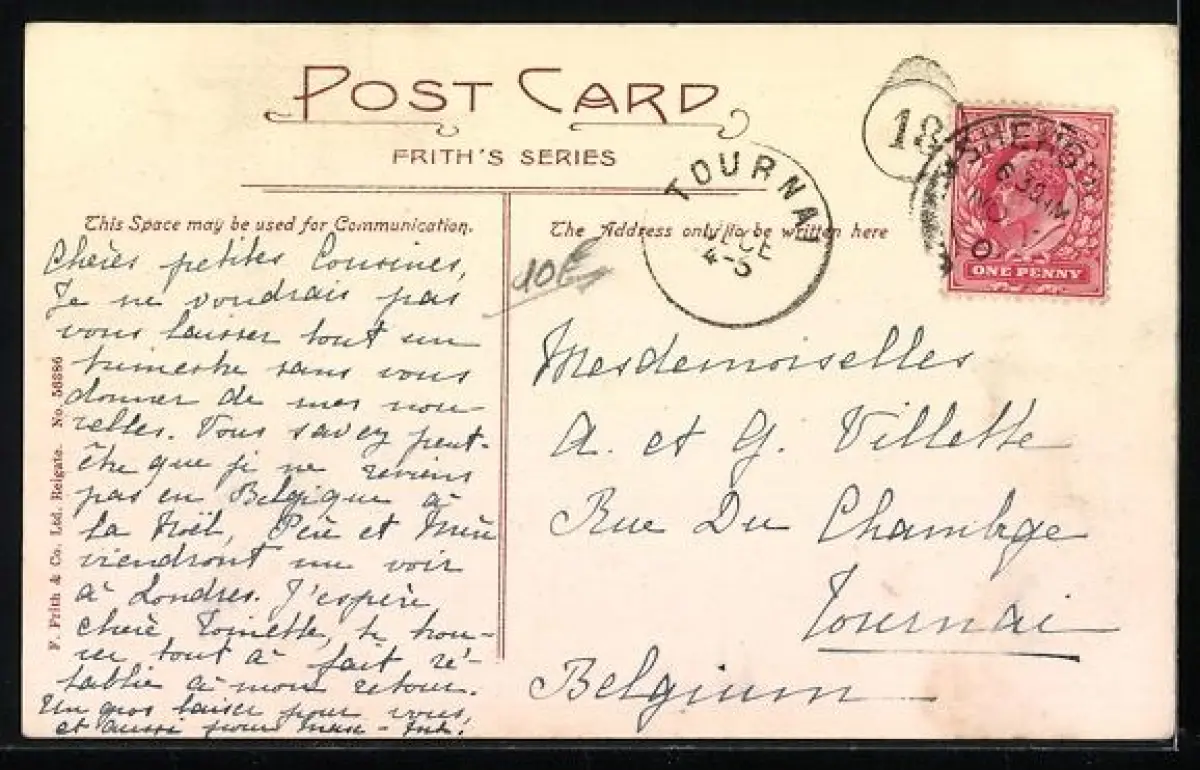 POST CARD
FRITH'S SERIES
This Space may be used for Communication.
The Address only to be written here
TOURNAI
4-5
18
6 30
ONE PENNY
10€
F. Frith & Co. Ltd. Reigate. No. 56386
Chères petites Cousines,
Je ne voudrais pas
vous laisser tout un
trimestre sans vous
donner de mes nou
velles. Vous savez peut-
être que je ne reviens
pas en Belgique à
la Noël, Père et Mère
viendront me voir
à Londres. J'espère
chère Toinette, te trou-
ver tout à fait ré-
tablie à mon retour.
Un gros baiser pour vous,
et aussi pour
Mesdemoiselles
A. et G. Villette
Rue Du Chambge
Tournai
Belgium